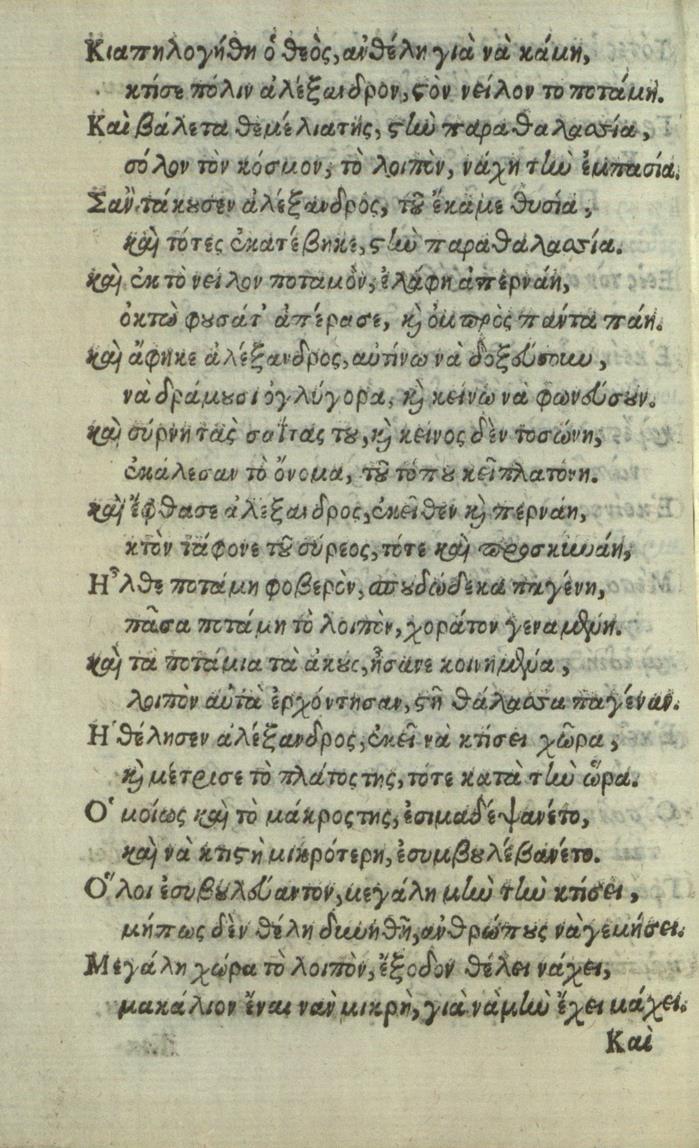 Κιαπηλογήθη ὁ θεὸς, ανθέλη γιὰ νὰ κάμη,
κτίσε πόλιν ἀλέξανδρον, ςὸν νεῖλον το ποτάμη.
Καὶ βάλετα θεμέλιατῆς, ςτὴν παραθαλασσία,
σόλον τὸν κόσμον, τὸ λοιπὸν, νάχη τὴν ἐμπασία.
Σαν τάκουσεν ἀλέξανδρος, τοῦ ἔκαμε θυσία,
καὶ τότες ἐκατέβηκε, ςτὴν παραθαλασσία.
καὶ ἐκ τὸ νεῖλον ποταμὸν, ἐλάφη ἀπερνάη,
ὀκτὼ φουσάτ' ἀπέρασε, κὶ ὀμπρὸς πάντα πάη.
καὶ ἄφηκε ἀλέξανδρος, αὐτίνω νὰ δοξεύσουν,
νὰ δράμουσι ὀγλύγορα, κὶ κείνω νὰ φωνεύσουν.
καὶ σύρνη τὰς σαΐτας του, κὶ κεῖνος δὲν τοσώνη,
ἐκάλεσαν τὸ ὄνομα, τοῦ τόπου κεῖ πλατόνη.
καὶ ἔφθασε ἀλέξανδρος, ἐκεῖθεν κὶ περνάη,
κτὸν τάφονε τοῦ σύρεος, τότε καὶ προσκυνάη,
Ἦλθε ποτάμη φοβερὸν, απουδώδεκα πηγένη,
πᾶσα ποτάμη τὸ λοιπὸν, χοράτον γεναμένη.
καὶ τα ποτάμια τὰ ἀκους, ἦσανε κοινημένα,
λοιπὸν αὐτὰ ἐρχόντησαν, ςτῆ θάλασσα παγέναν.
Ἠθέλησεν ἀλέξανδρος, ἐκεῖ νὰ κτίσει χῶρα,
κὶ μέτρισε τὸ πλάτος της, τότε κατὰ τὴν ὥρα.
Ὁμοίως καὶ τὸ μάκρος της, ἐσιμαδέψανέτο,
καὶ νὰ κτιςῆ μικρότερη, ἐσυμβουλέβανέτο.
Ὅλοι ἐσυβουλεύαντον, μεγάλη μὴν τὴν κτίσει,
μήπως δὲν θέλη δυνηθῆ, ἀνθρώπους νὰ γεμήσει.
Μεγάλη χώρα τὸ λοιπὸν, ἔξοδον θέλει νάχει,
μακάλιον ἔναι νὰν μικρὴ, γιὰ νὰ μὴν ἔχει μάχει.
Καὶ